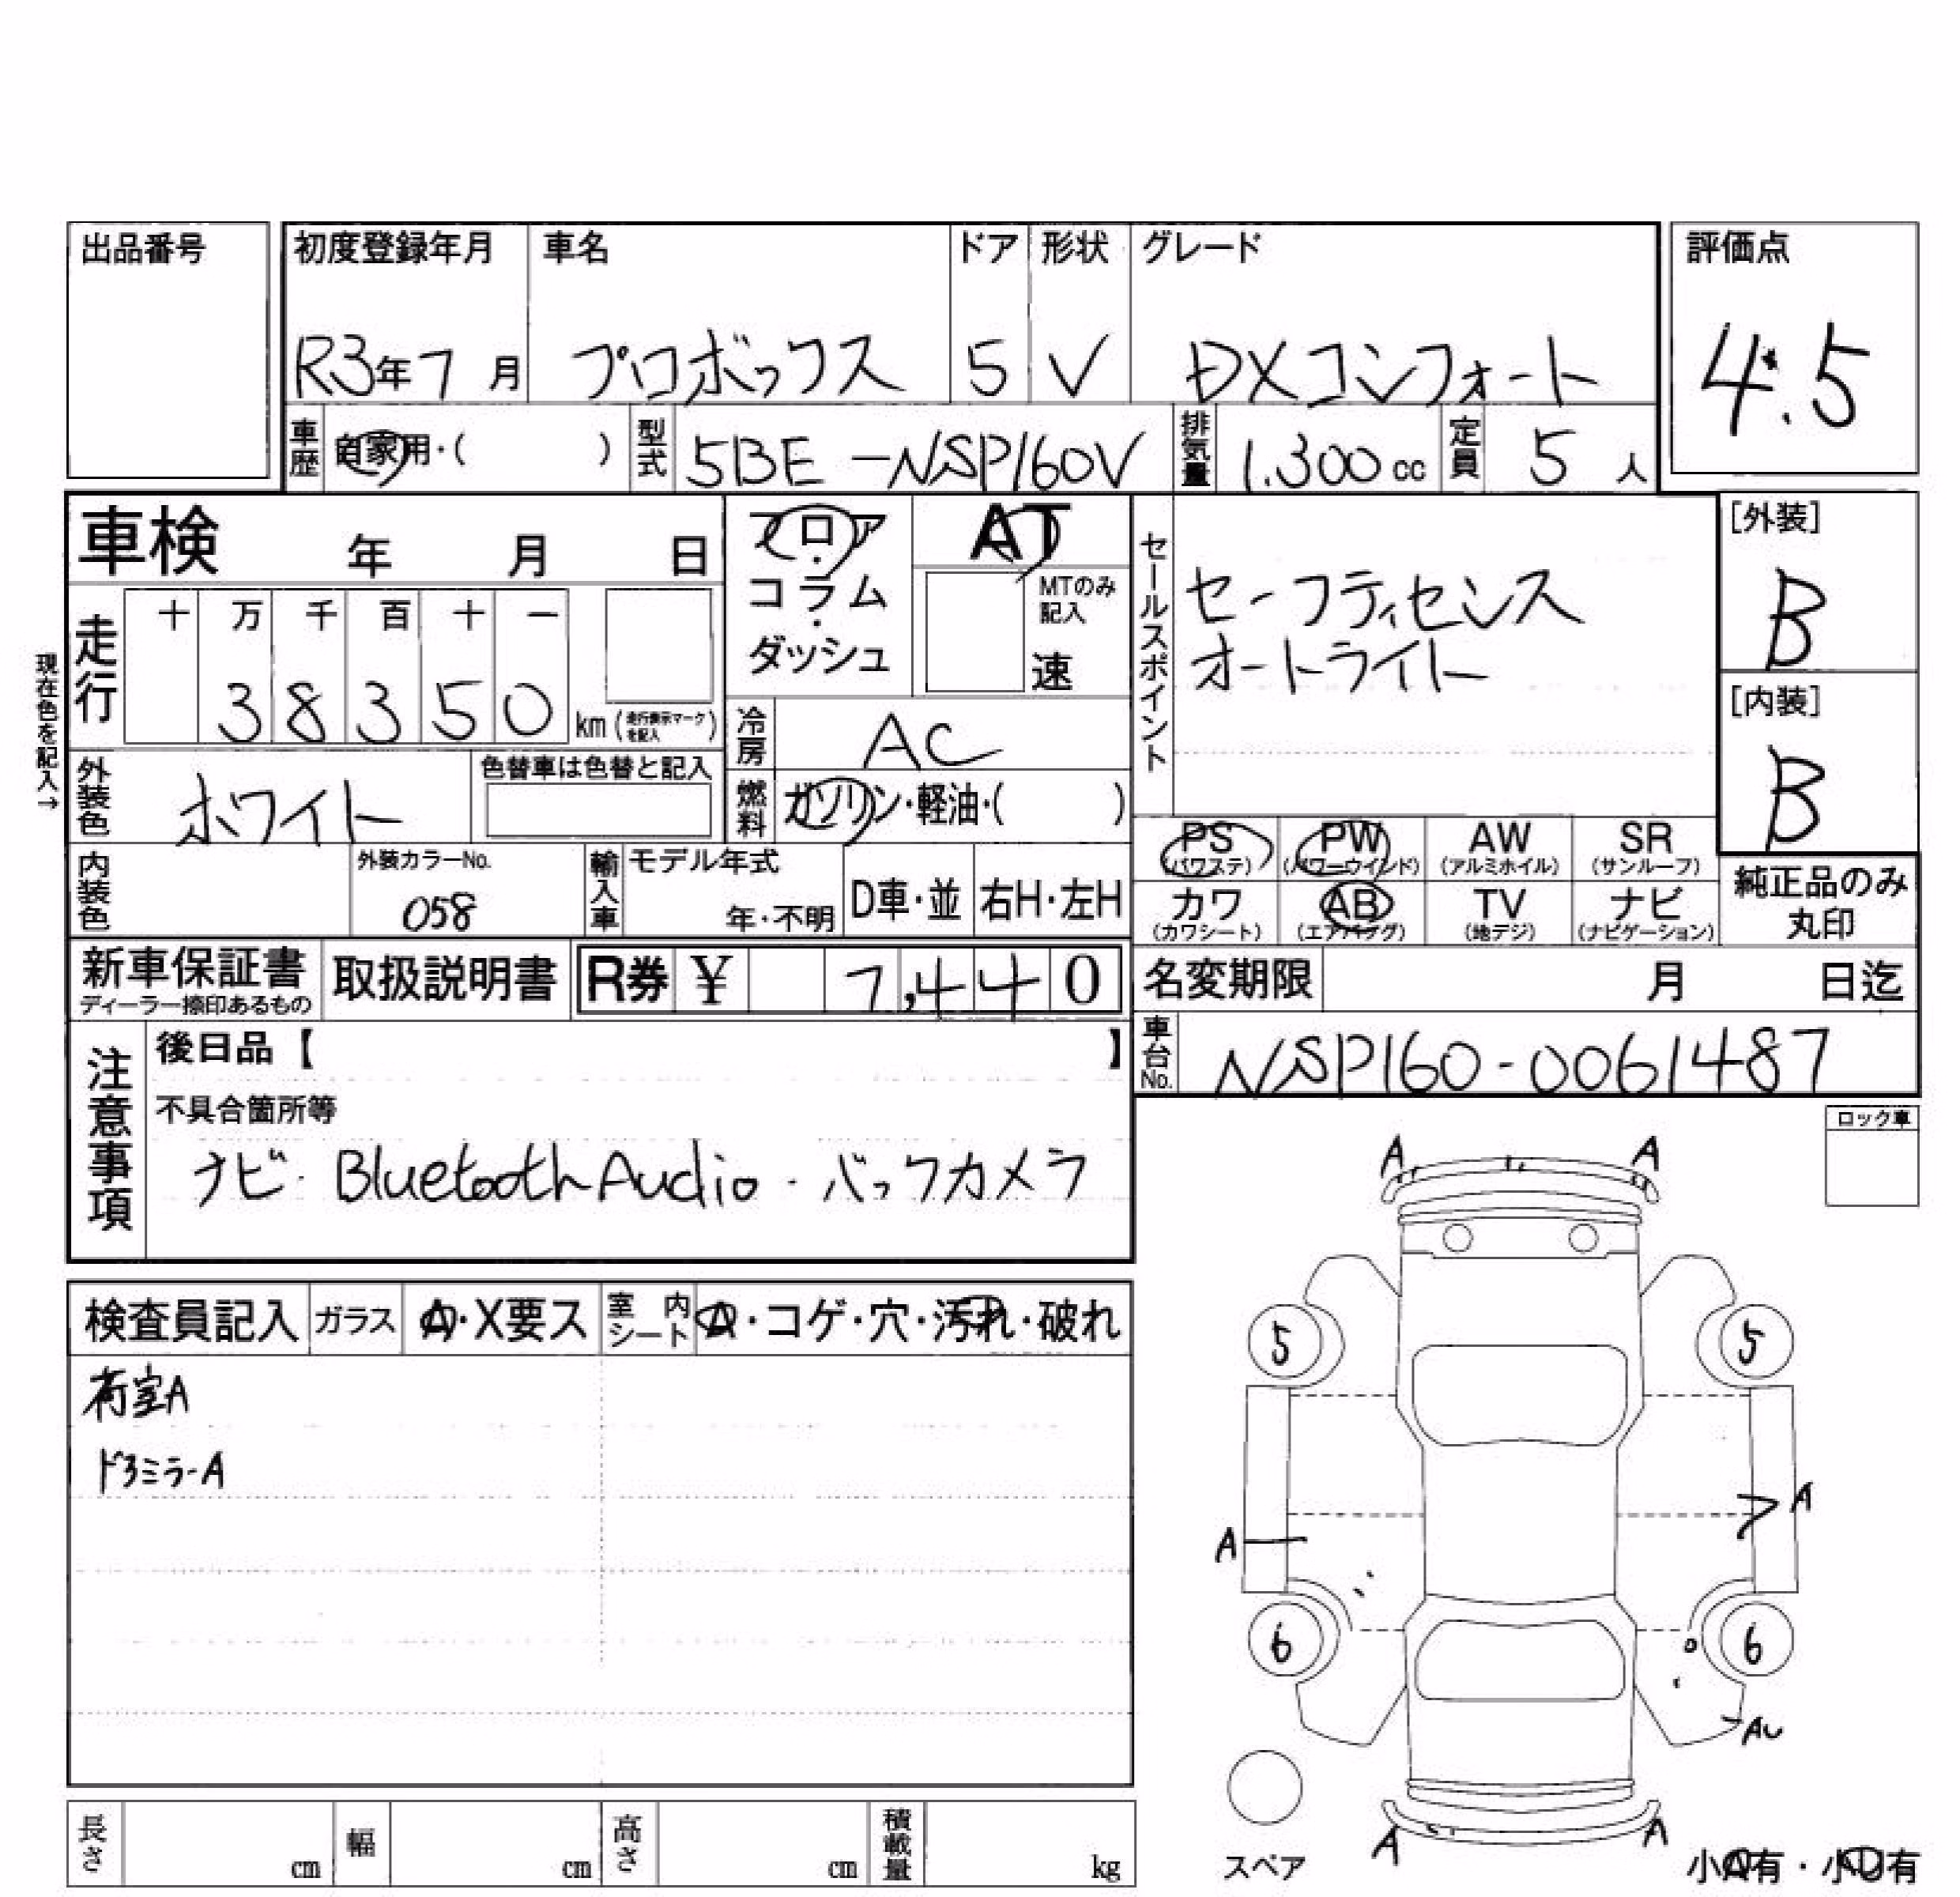 出品番号
初度登録年月 車名 ドア 形状 グレード 評価点
R3年7月 プロボックス 5 V DXコンフォート 4.5
車歴 自家用・( ) 型式 5BE-NSP160V 排気量 1.300cc 定員 5人
車検 年 月 日
フロア・コラム・ダッシュ
AT
MTのみ記入
速
セールスポイント
セーフティセンス
オートライト
[外装]
B
[内装]
B
現在色を記入→
走行 十 万 千 百 十 一
38350 km (走行表示マークを記入)
冷房 AC
外装色 ホワイト 色替車は色替と記入
燃料 ガソリン・軽油・( )
内装色 外装カラーNo. 058
輸入車 モデル年式 年・不明 D車・並 右H・左H
PS (パワステ) PW (パワーウインド) AW (アルミホイル) SR (サンルーフ)
カワ (カワシート) AB (エアバッグ) TV (地デジ) ナビ (ナビゲーション)
純正品のみ丸印
新車保証書 ディーラー捺印あるもの 取扱説明書 R券 ¥ 7,440
名変期限 月 日迄
車台No. NSP160-0061487
注意事項
後日品【 】
不具合箇所等
ナビ・BluetoothAudio・バックカメラ
ロック車
検査員記入 ガラス A・X要ス 室内シート A・コゲ・穴・汚れ・破れ
荷室A
ドアミラーA
A A
5 5
A
A
6 6
AU
A A
スペア
小A有・小U有
長さ cm 幅 cm 高さ cm 積載量 kg